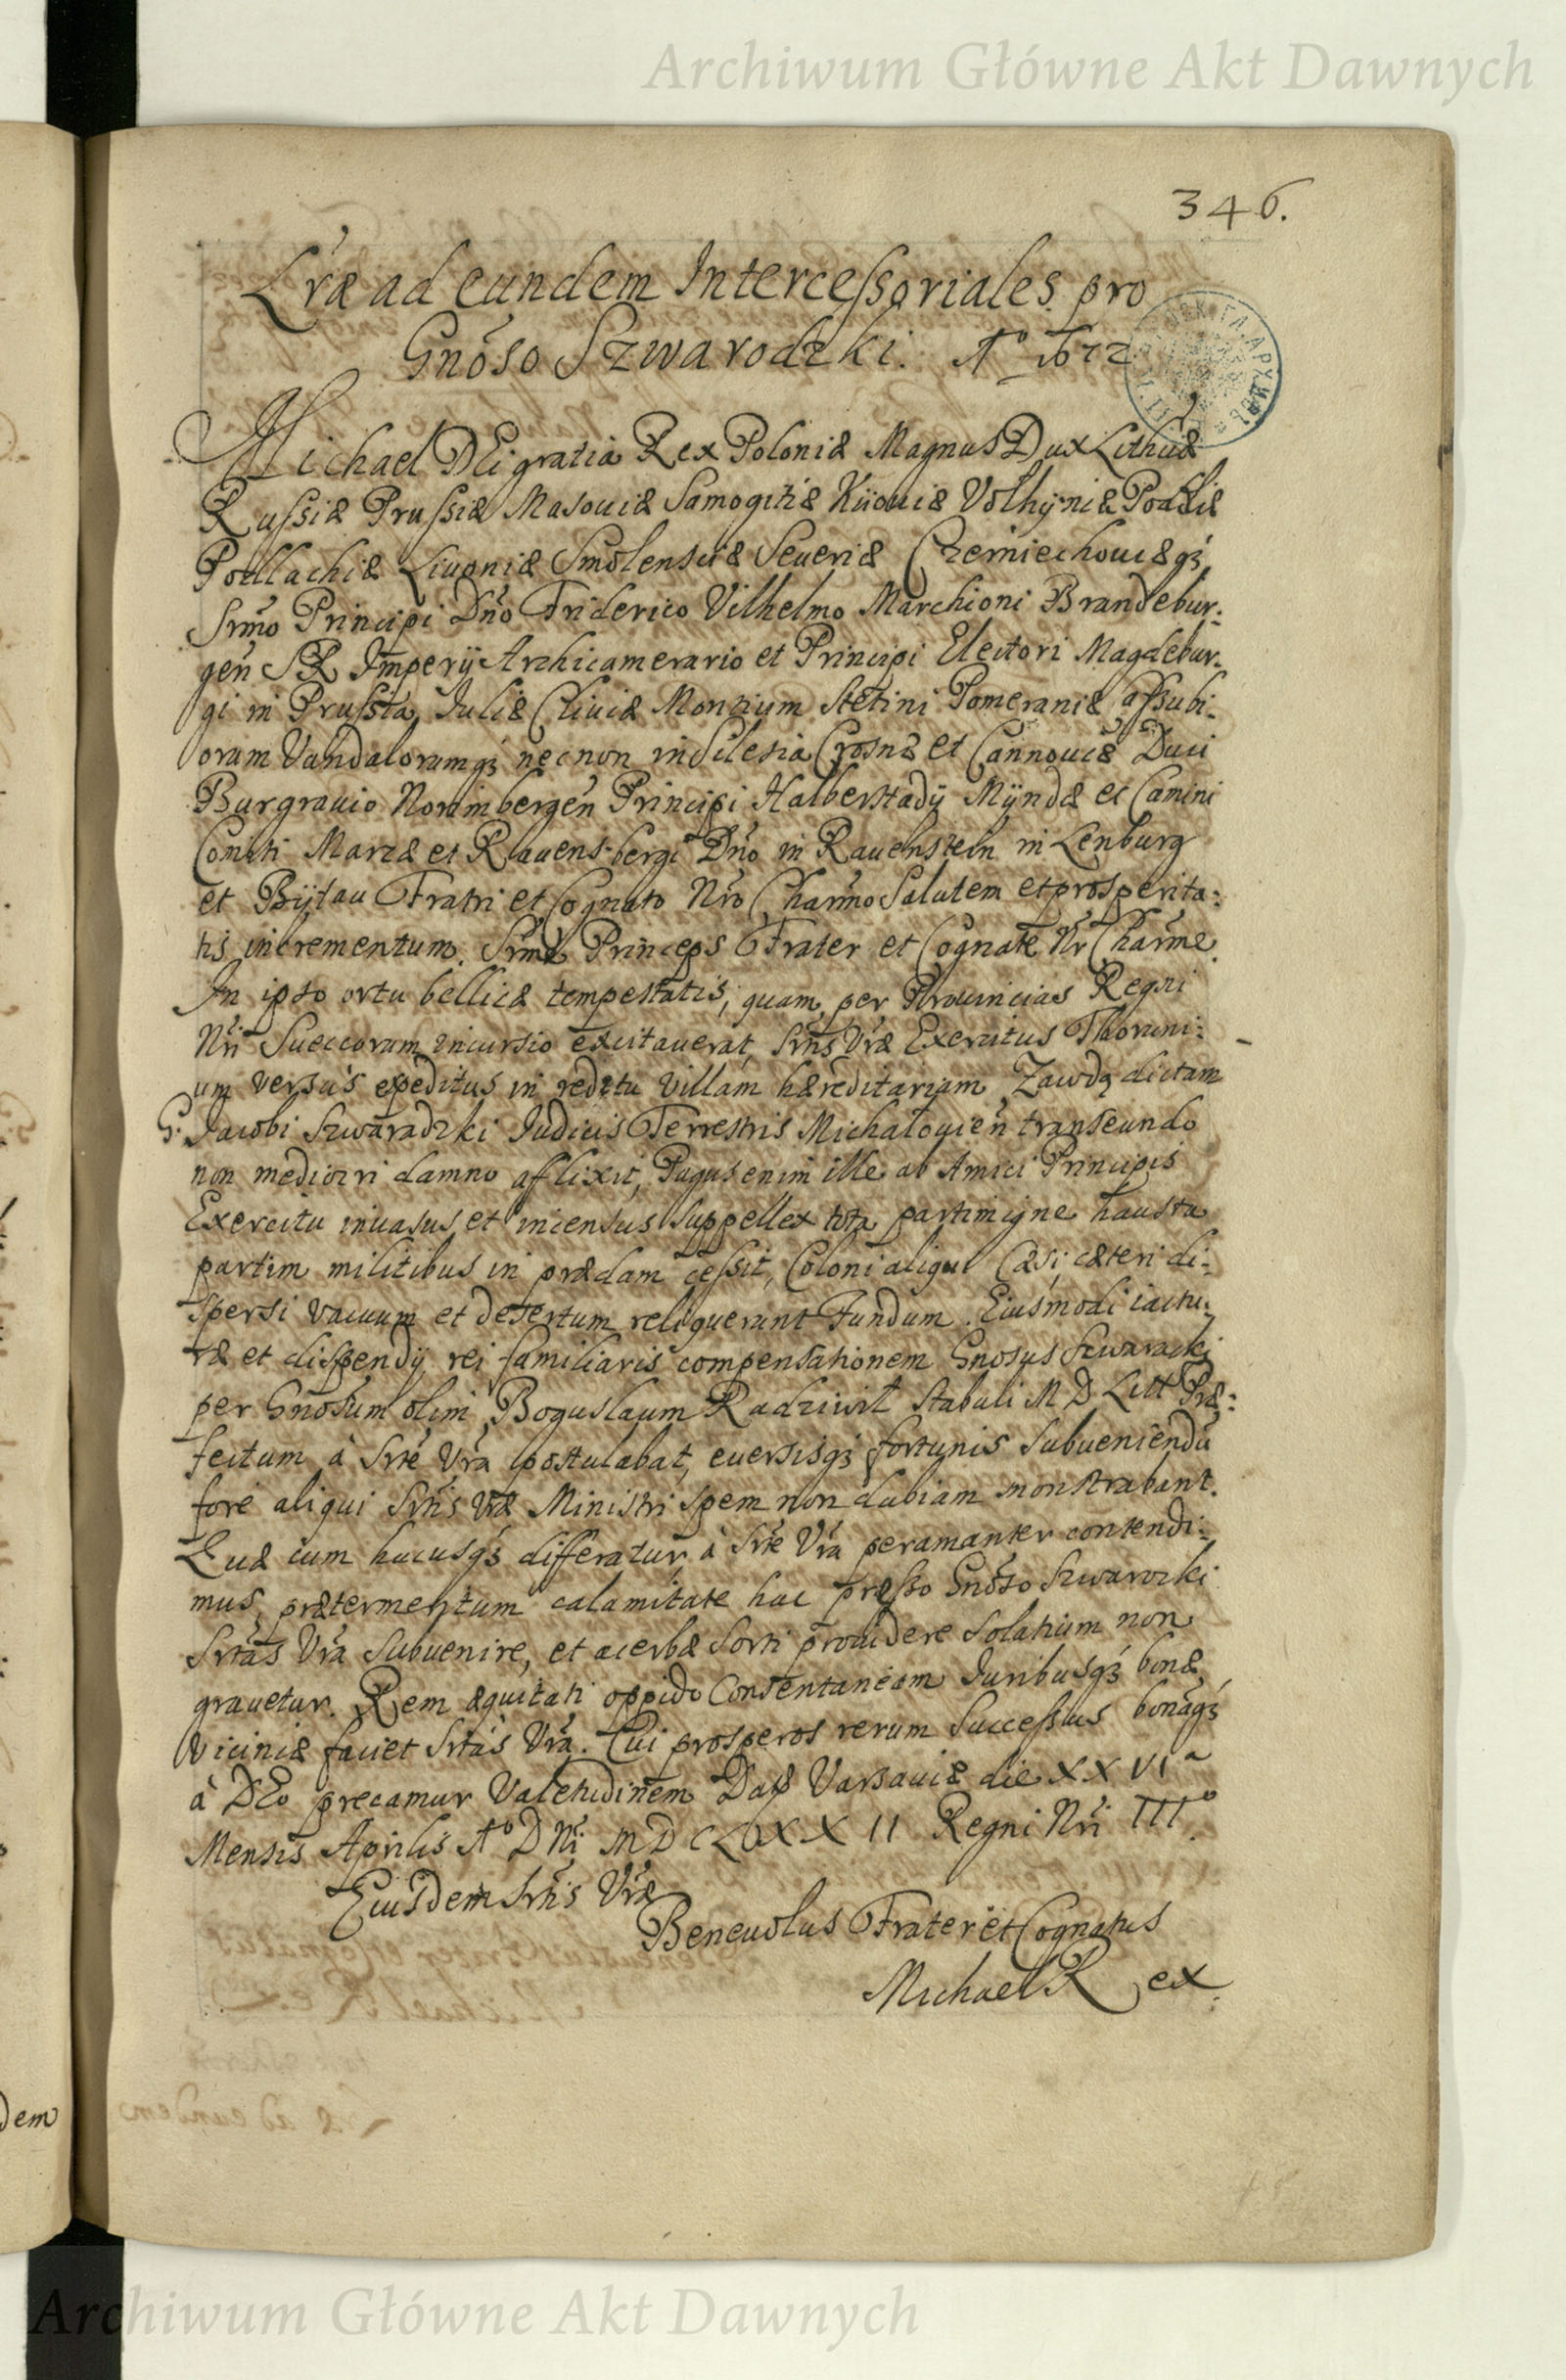 Archiwum Główne Akt Dawnych
346.
Lræ ad eundem Intercessoriales pro
Gnoso Szwarodzki. Aº 1672
Michael DEi gratia Rex Poloniæ Magnus Dux Lithuæ
Russiæ Prussiæ Masouiæ Samogitiæ Kiiouiæ Volhyniæ Podoliæ
Podlachiæ Liuoniæ Smolensciæ Seueriæ Czerniechouiæqꝫ
Srmo Principi Dno Friderico Vilhelmo Marchioni Brandebur:
gen S R Imperij Archicamerario et Principi Electori Magdebur:
gi in Prussia, Juliæ Cliuiæ Montium Stetini Pomeraniæ Cassubi:
orum Vandalorumqꝫ necnon in Silesia Crosnæ et Carnouiæ Duci
Burgrauio Norimbergen Principi Halberstadij Myndæ et Camini
Comiti Marcæ et Rauens-bergi Dno in Rauenstein in Lenburg
et Bijtau Fratri et Cognato Nro Charmo Salutem et prosperita:
tis incrementum. Srme Princeps Frater et Cognate Nr Charme.
In ipso ortu bellicæ tempestatis, quam per Prouincias Regni
Nri Sueccorum incursio excitauerat, Srtis Vræ Exercitus Thoruni:
um versus expeditus in reditu Villam hæreditariam Zawdą dictam
G. Jacobi Szwaradzki Judicis Terrestris Michalouien transeundo
non mediocri damno afflixit, Pagus enim ille ab Amici Principis
Exercitu inuasus et incensus suppellex tota partim igne hausta
partim militibus in prædam cessit, Coloni aliqui Cæsi cæteri di:
spersi vacuum et desertum reliquerunt Fundum. Eiusmodi iactu:
ræ et dispendij rei familiaris compensationem Gnosus Szwaracki
per Gnosum olim Boguslaum Radziwił Stabuli M D Litt Præ:
fectum à Srte Vra postulabat, euersisqꝫ fortunis subueniendu
fore aliqui Srtis Vræ Ministri spem non dubiam monstrabant.
Quæ cum hucusqꝫ differatur, à Srte Vra peramanter contendi:
mus, prætermentum calamitate hac presso Gnoso Szwarocki
Srtas Vra subuenire, et acerbæ sorti prouidere solatium non
grauetur. Rem æquitati oppido Consentaneam Juribusqꝫ bonæ
Viciniæ faciet Srtas Vra. Cui prosperos rerum Successus bonaqꝫ
à DEo precamur Valetudinem Datt Varsauiæ die XXVIa
Mensis Aprilis Aº DNi MDCLXXII Regni Nri IIIº.
Eiusdem Srtis Vræ
Beneuolus Frater et Cognatus
Michael Rex
dem
Archiwum Główne Akt Dawnych